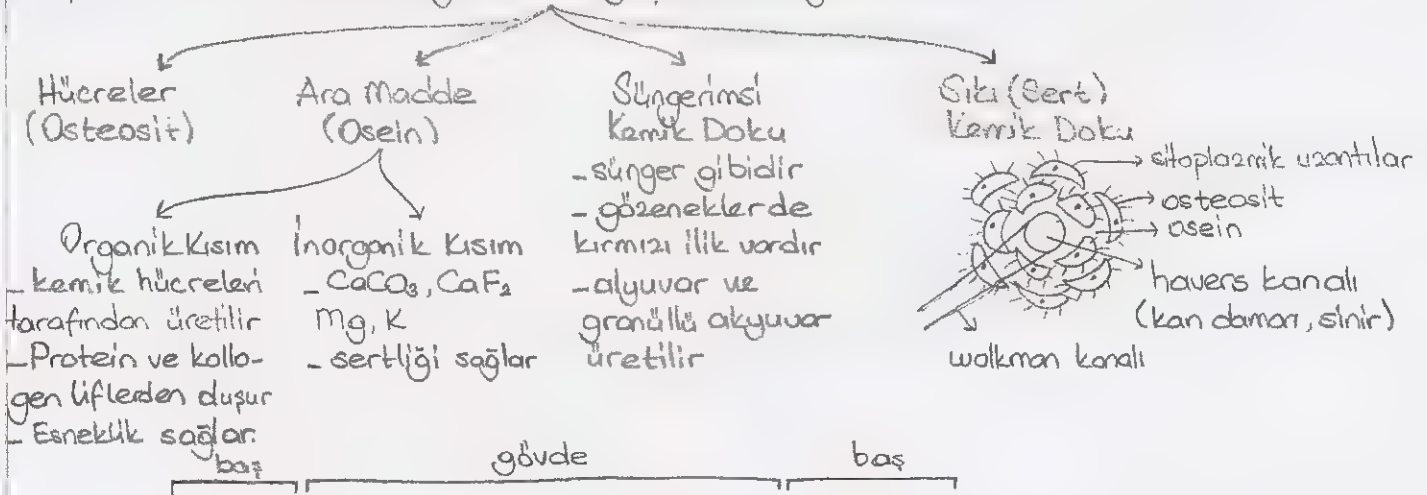 Hücreler
(Osteosit)
Ara Madde
(Osein)
Organik Kısım
- kemik hücreleri
tarafından üretilir
- Protein ve kollo-
gen liflerden oluşur
- Esneklik sağlar.
İnorganik Kısım
- CaCO₃, CaF₂
Mg, K
- sertliği sağlar
Süngerimsi
Kemik Doku
- sünger gibidir
- gözeneklerde
kırmızı ilik vardır
- alyuvar ve
granüllü akyuvar
üretilir
Sıkı (Sert)
Kemik Doku
sitoplazmik uzantılar
osteosit
osein
havers kanalı
(kan damarı, sinir)
walkman kanalı
baş
gövde
baş